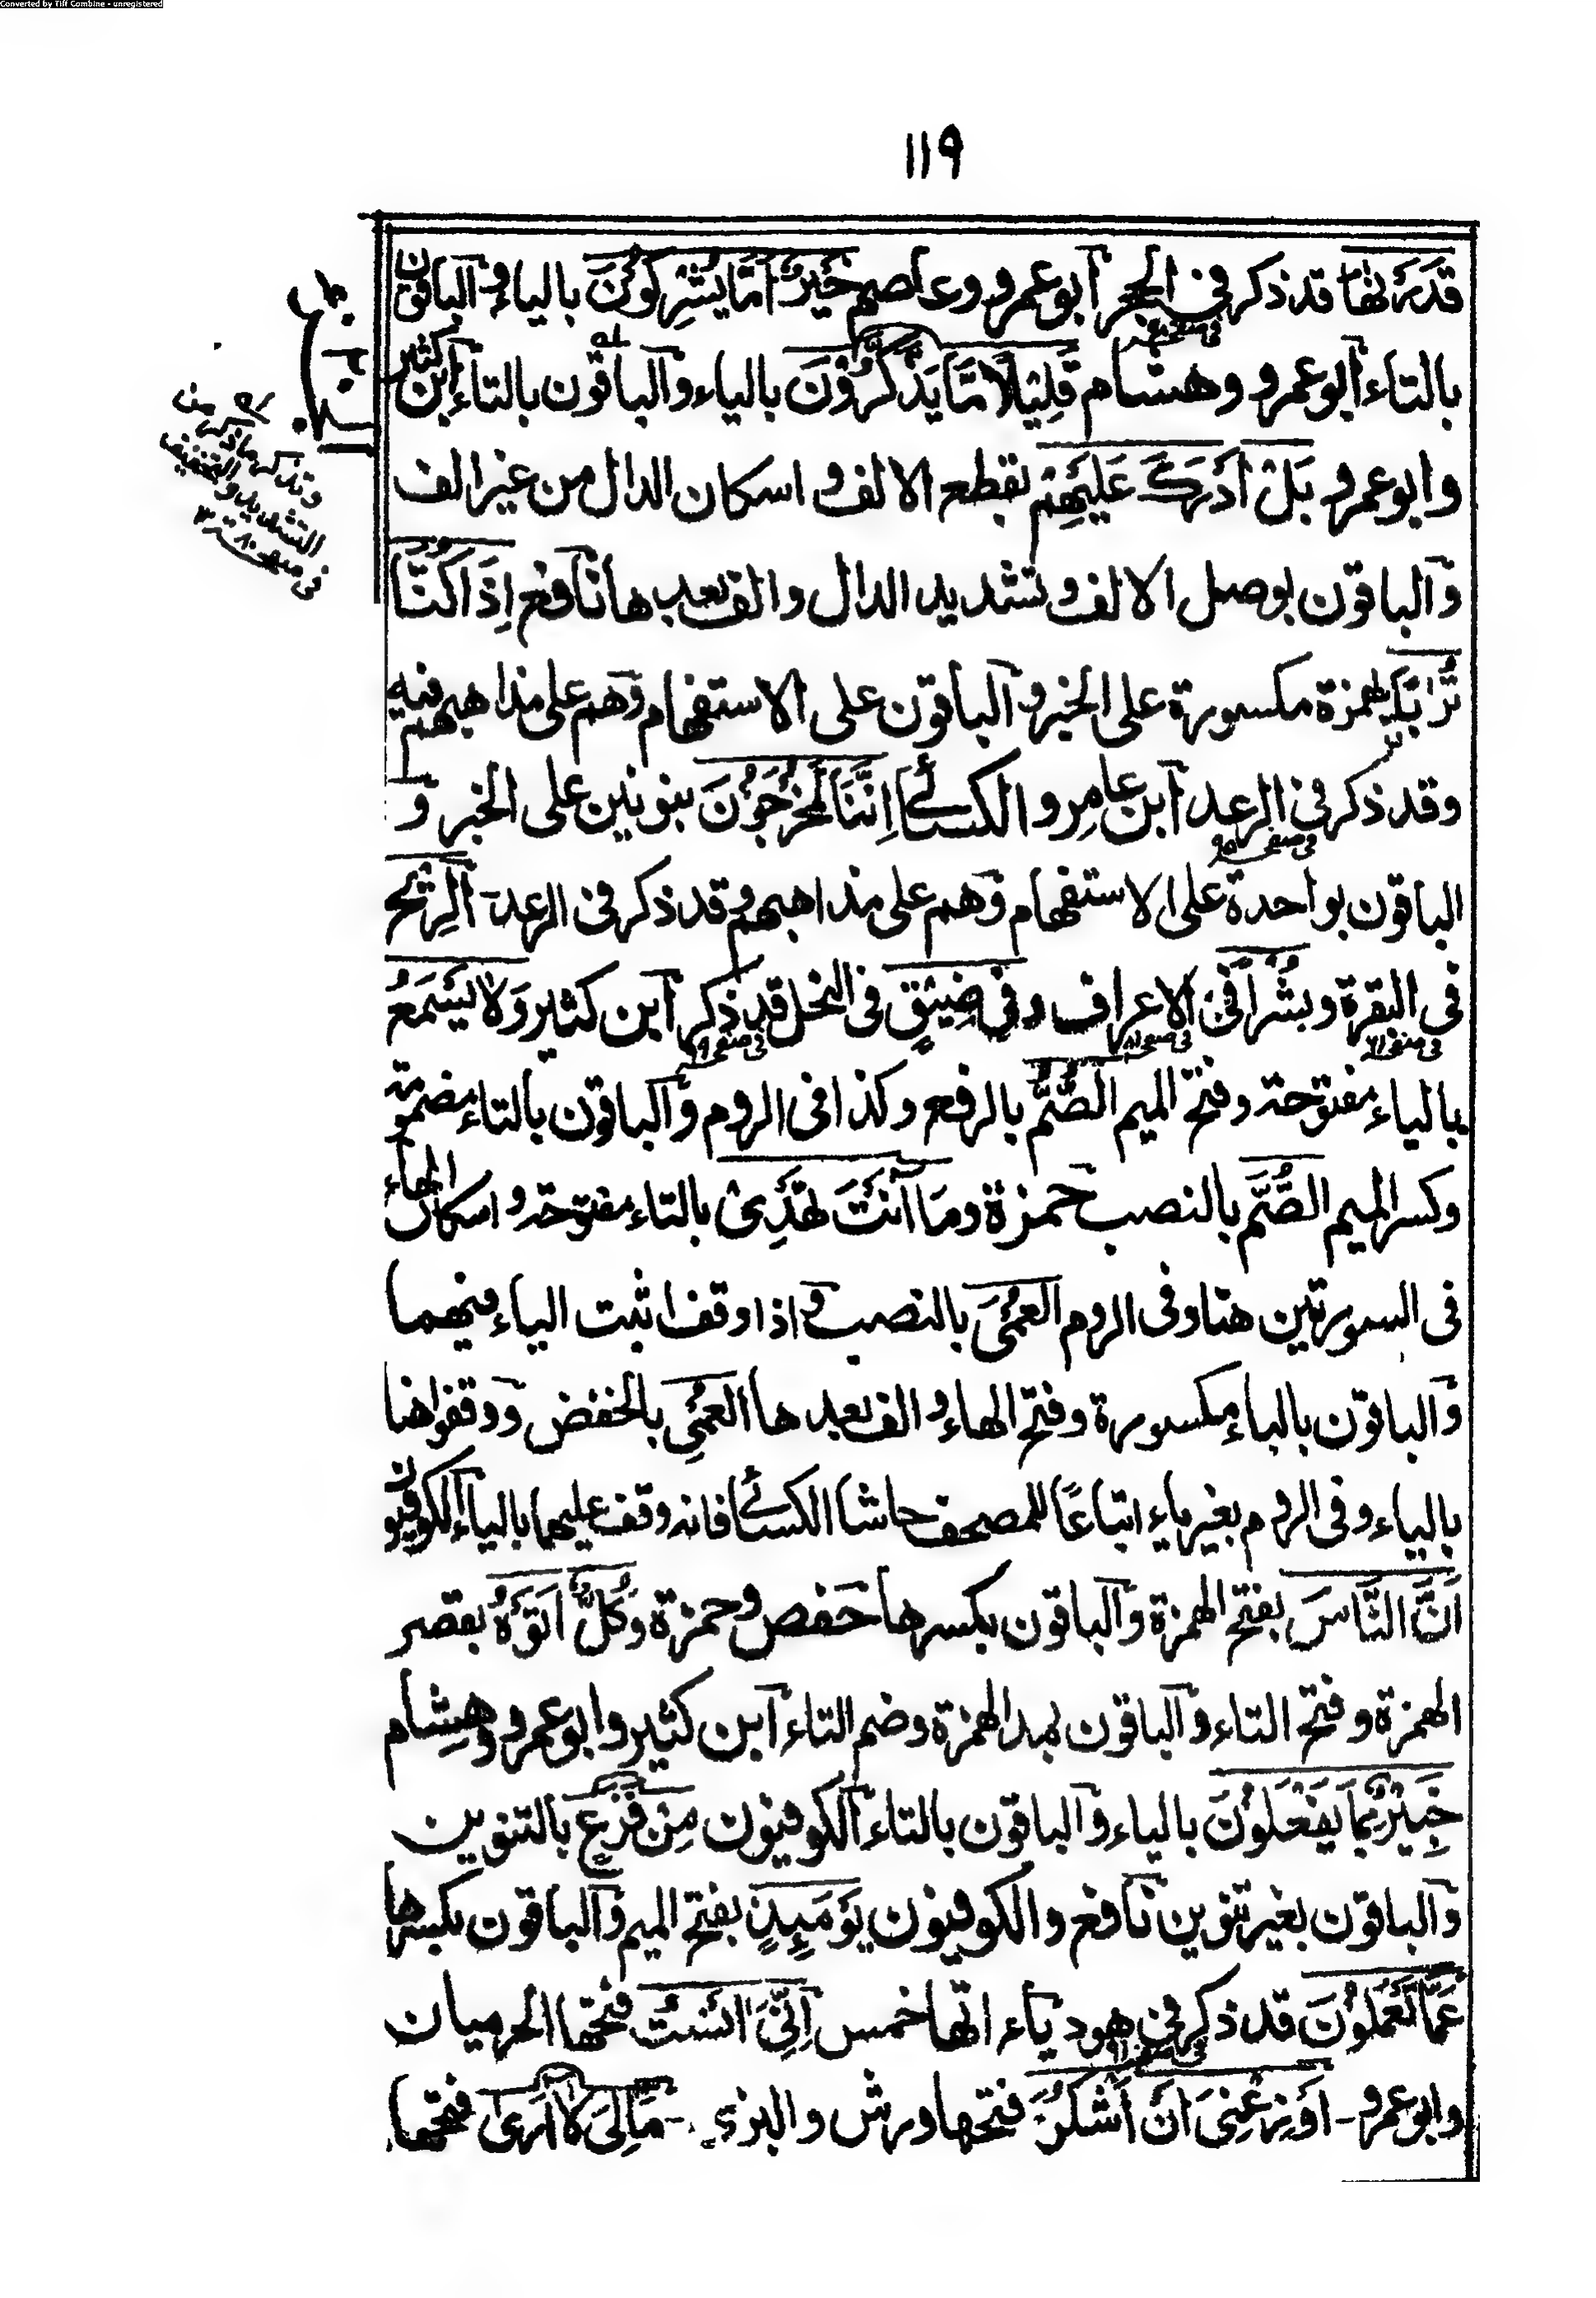 Converted by Tiff Combine - unregistered
١١٩
قَدَّرْنٰهَا قد ذكر فى الحجر ابو عمرو وعاصم خَيْرٌ اَمَّا يُشْرِكُوْنَ بالياء والباقون
فى صفحه
بالتاء ابو عمرو وهشام قَلِيْلًا مَّا يَذَّكَّرُوْنَ بالياء والباقون بالتاء ابن كثير
وابو عمرو بَلْ اَدْرَكَ عَلَيْهِمْ بقطع الالف و اسكان الدال من غير الف
والباقون بوصل الالف وتشديد الدال والف بعدها نافع اِذَا كُنَّا
تُرَابًا بهمزة مكسورة على الخبر والباقون على الاستفهام وهم على مذاهبهم فيه
وقد ذكر فى الرعد ابن عامر و الكسائے اِنَّنَا لَمُخْرَجُوْنَ بنونين على الخبر و
فى صفحه ٩٥
الباقون بواحدة على الاستفهام وهم على مذاهبهم وقد ذكر فى الرعد اَلرِّيْحَ
فى البقرة و بُشْرًا فى الاعراف و فِىْ ضَيْقٍ فى النحل قد ذكر ابن كثير وَلَا يَسْمَعُ
فى صفحه ٧١ فى صفحه ٨١ فى صفحه
بالياء مفتوحة وفتح الميم الصُّمُّ بالرفع وكذا فى الروم والباقون بالتاء مضمومة
وكسر الميم الصُّمَّ بالنصب حمزة وَمَا اَنْتَ تَهْدِىْ بالتاء مفتوحة و اسكان الهاء
فى السورتين هنا وفى الروم العُمْىَ بالنصب و اذا وقف اثبت الياء فيهما
والباقون بالباء مكسورة وفتح الهاء و الف بعدها العُمْىِ بالخفض ووقفوا هنا
بالياء وفى الروم بغير ياء اتباعًا للمصحف حاشا الكسائے فانه وقف عليهما بالياء الكوفيون
اَنَّ النَّاسَ بفتح الهمزة والباقون بكسرها حفص وحمزة وَكُلٌّ اَتَوْهُ بقصر
الهمزة وفتح التاء والباقون بمد الهمزة وضم التاء ابن كثير وابو عمرو وهشام
خَبِيْرٌ بِمَا يَفْعَلُوْنَ بالياء والباقون بالتاء الكوفيون مِنْ فَزَعٍ بالتنوين
والباقون بغير تنوين نافع والكوفيون يَوْمَئِذٍ بفتح الميم والباقون بكسرها
عَمَّا تَعْمَلُوْنَ قد ذكر فى هود ياء اتها خمس اِنِّىْ اٰنَسْتُ فتحها الحرميان
فى صفحه
وابو عمرو - اَوْزِعْنِىْ اَنْ اَشْكُرَ فتحها ورش و البزى - مَالِىَ لَا اَرٰى فتحها
وتذكر ما ذكر من
التشديد والتخفيف